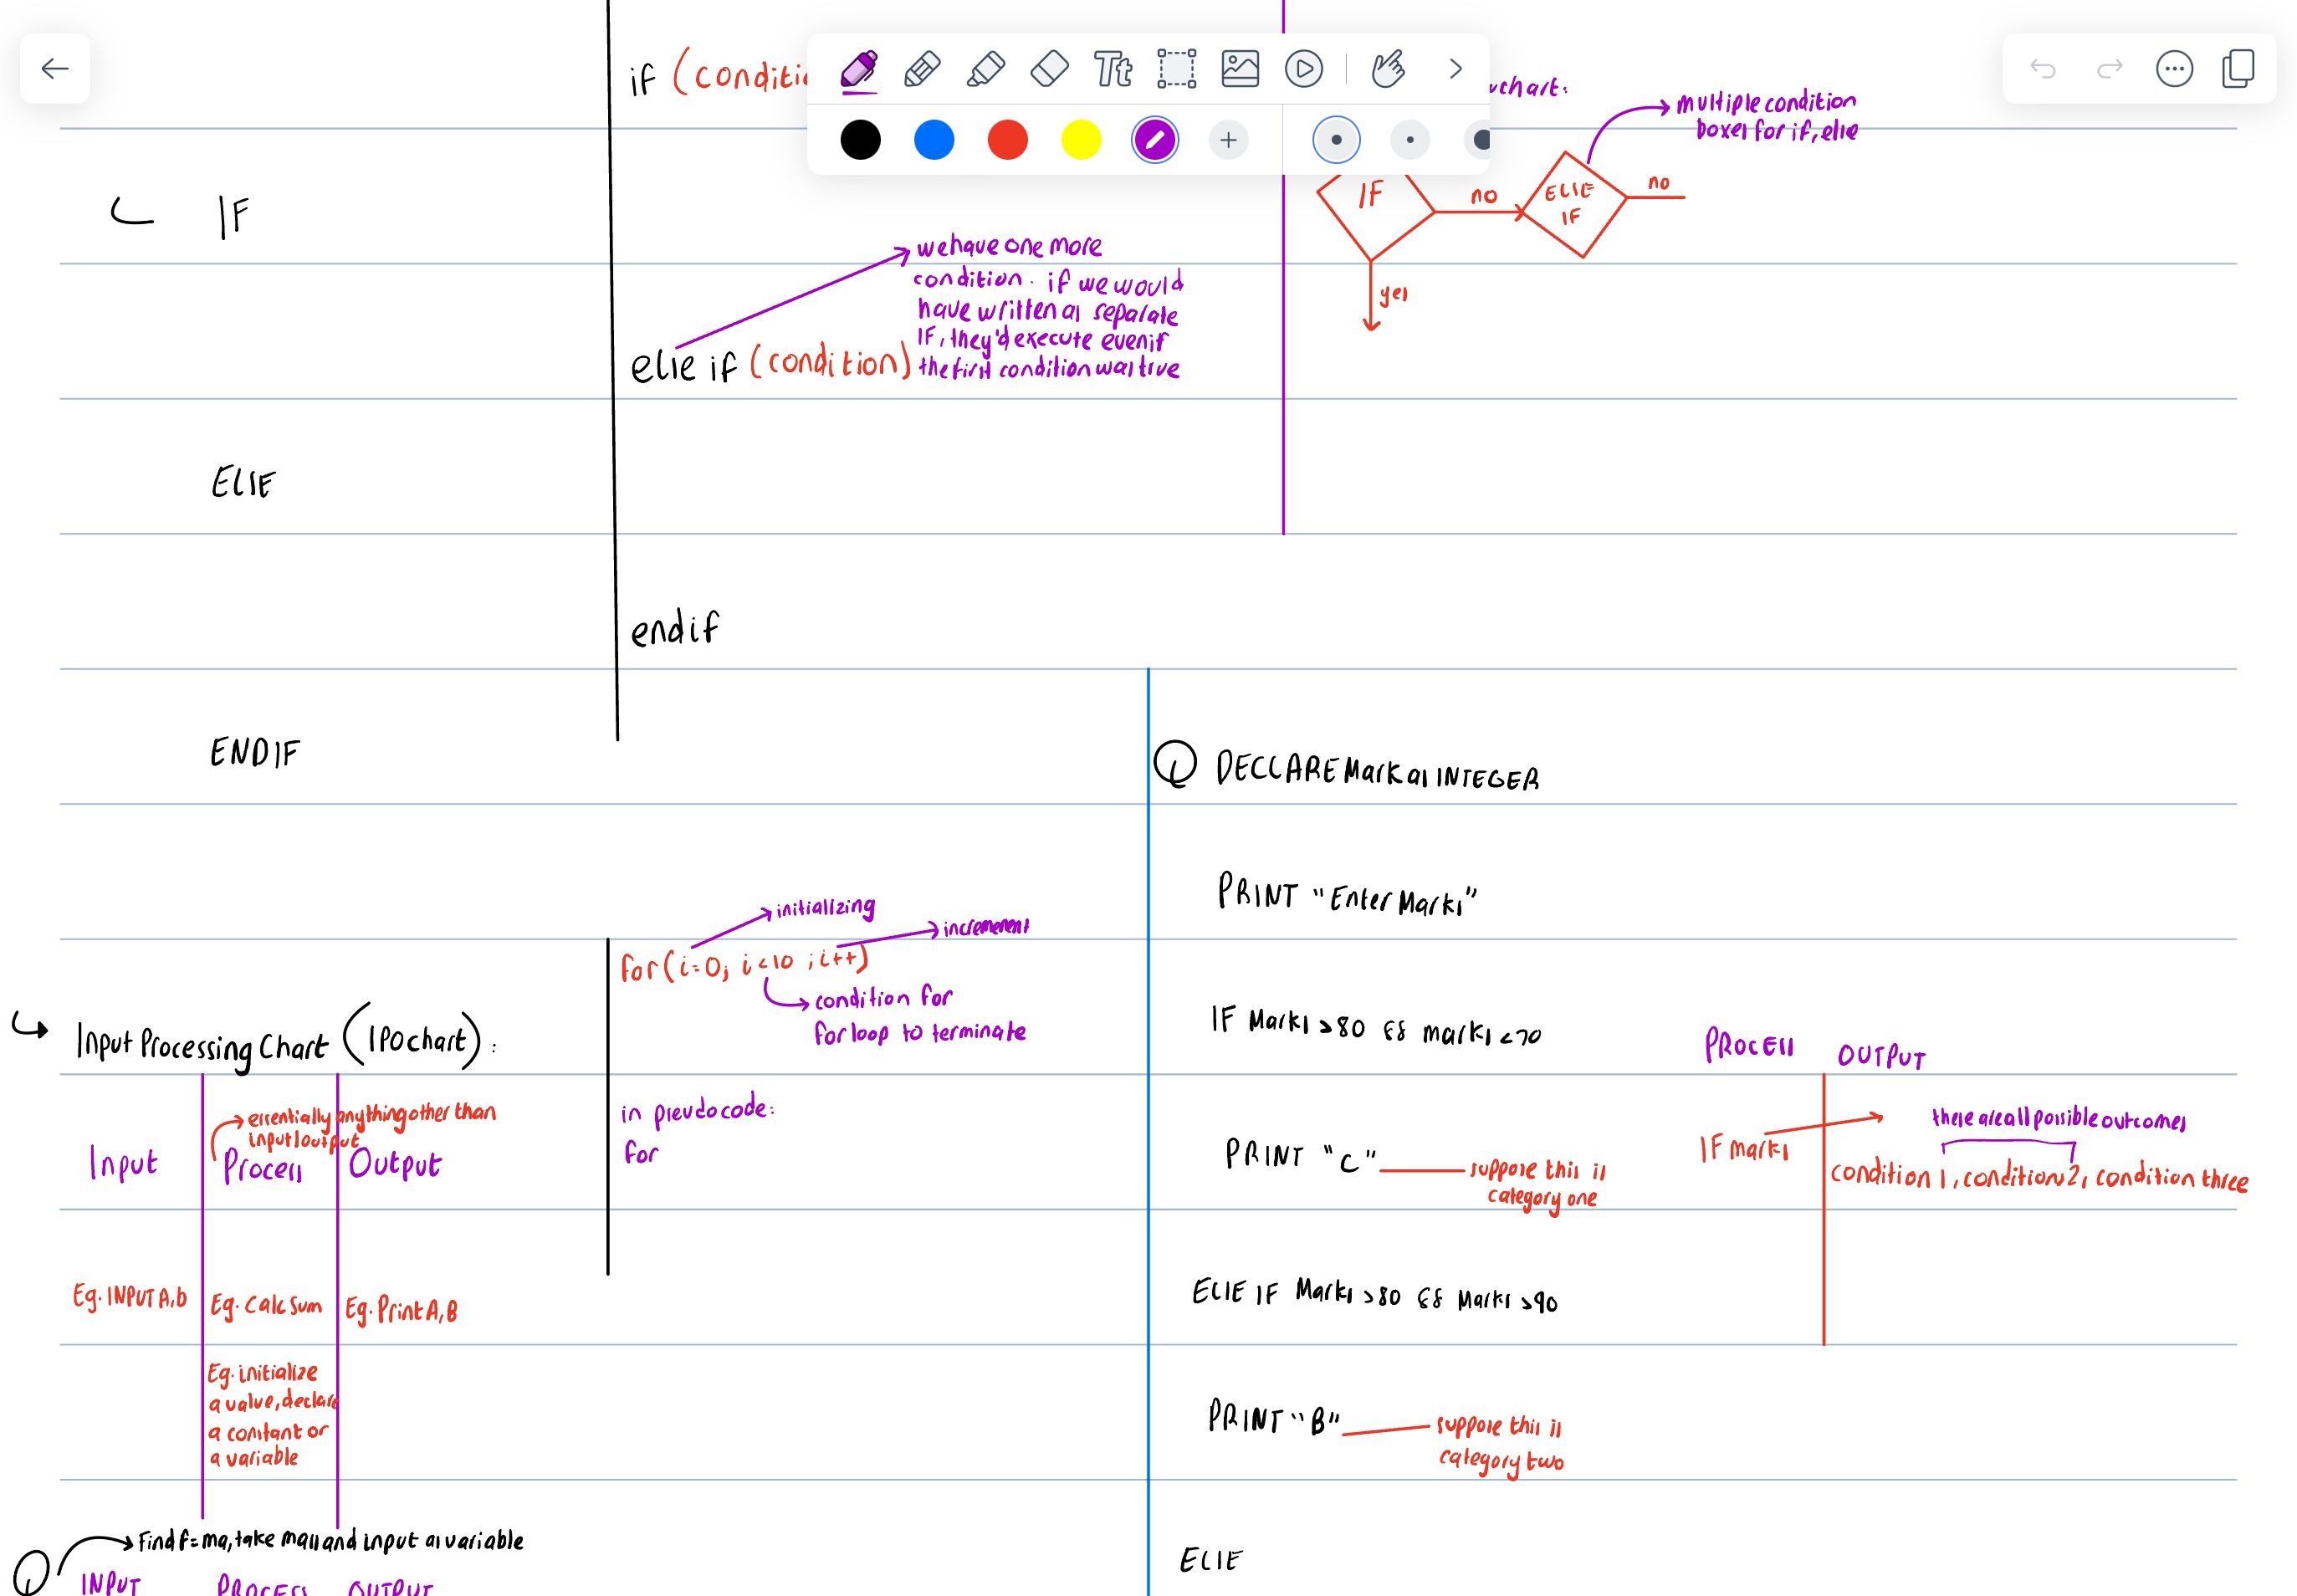 if (conditio
wchart:
multiple condition
boxes for if, else
IF
IF
no
ELSE
IF
no
yes
we have one more
condition. if we would
have written as separate
IF, they'd execute even if
the first condition was true
else if (condition)
ELSE
endif
ENDIF
Q DECLARE Mark as INTEGER
PRINT "Enter Marks"
initializing
increment
for (i=0; i<10 ; i++)
condition for
for loop to terminate
IF Marks >80 && marks <70
Input Processing Chart (IPO chart):
PROCESS
OUTPUT
essentially anything other than
input/output
in pseudocode:
for
these are all possible outcomes
Input
Process
Output
PRINT "C"
suppose this is
category one
IF marks
condition 1, condition 2, condition three
Eg. INPUT A,b
Eg. Calc Sum
Eg. Print A,B
ELSE IF Marks >80 && Marks >90
Eg. initialize
a value, declare
a constant or
a variable
PRINT "B"
suppose this is
category two
Q
Find f=ma, take mass and input as variable
INPUT
PROCESS
OUTPUT
ELSE